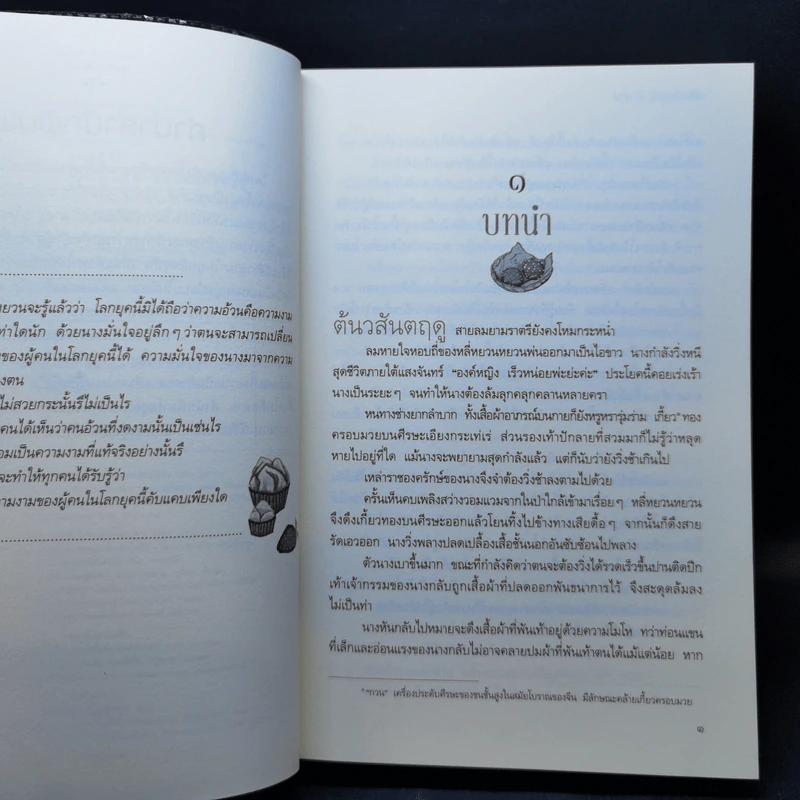 หยวนจะรู้แล้วว่า โลกยุคนี้มิได้ถือว่าความอ้วนคือความงาม
ท่าใดนัก ด้วยนางมั่นใจอยู่ลึกๆ ว่าตนจะสามารถเปลี่ยน
ของผู้คนในโลกยุคนี้ได้ ความมั่นใจของนางมาจากความ
งตน
ไม่สวยกระนั้นรึไม่เป็นไร
คนได้เห็นว่าคนอ้วนที่งดงามนั้นเป็นเช่นไร
อมเป็นความงามที่แท้จริงอย่างนั้นรึ
จะทำให้ทุกคนได้รับรู้ว่า
วามงามของผู้คนในโลกยุคนี้คับแคบเพียงใด
๑
บทนำ
ต้นวสันตฤดู สายลมยามราตรียังคงโหมกระหน่ำ
ลมหายใจหอบถี่ของหลี่หยวนหยวนพ่นออกมาเป็นไอขาว นางกำลังวิ่งหนี
สุดชีวิตภายใต้แสงจันทร์ “องค์หญิง เร็วหน่อยพ่ะย่ะค่ะ” ประโยคนี้คอยเร่งเร้า
นางเป็นระยะๆ จนทำให้นางต้องล้มลุกคลุกคลานหลายครา
หนทางช่างยากลำบาก ทั้งเสื้อผ้าอาภรณ์บนกายก็ยังหรูหรารุ่มร่าม เกี้ยว*ทอง
ครอบมวยบนศีรษะเอียงกระเท่เร่ ส่วนรองเท้าปักลายที่สวมมาก็ไม่รู้ว่าหลุด
หายไปอยู่ที่ใด แม้นางจะพยายามสุดกำลังแล้ว แต่ก็นับว่ายังวิ่งช้าเกินไป
เหล่าราชองครักษ์ของนางจึงจำต้องวิ่งช้าลงตามไปด้วย
ครั้นเห็นคบเพลิงสว่างวอมแวมจากในป่าใกล้เข้ามาเรื่อยๆ หลี่หยวนหยวน
จึงดึงเกี้ยวทองบนศีรษะออกแล้วโยนทิ้งไปข้างทางเสียดื้อๆ จากนั้นก็ดึงสาย
รัดเอวออก นางวิ่งพลางปลดเปลื้องเสื้อชั้นนอกอันซับซ้อนไปพลาง
ตัวนางเบาขึ้นมาก ขณะที่กำลังคิดว่าตนจะต้องวิ่งได้รวดเร็วขึ้นปานติดปีก
เท้าเจ้ากรรมของนางกลับถูกเสื้อผ้าที่ปลดออกพันธนาการไว้ จึงสะดุดล้มลง
ไม่เป็นท่า
นางหันกลับไปหมายจะดึงเสื้อผ้าที่พันเท้าอยู่ด้วยความโมโห ทว่าท่อนแขน
ที่เล็กและอ่อนแรงของนางกลับไม่อาจคลายปมผ้าที่พันเท้าตนได้แม้แต่น้อย หาก
* “กวน” เครื่องประดับศีรษะของชนชั้นสูงในสมัยโบราณของจีน มีลักษณะคล้ายเกี้ยวครอบมวย
๑